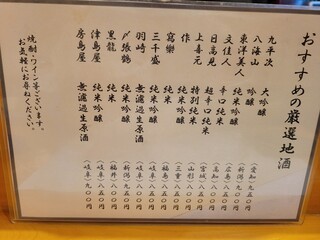 おすすめの厳選地酒
九平次 大吟醸 (愛知)九五〇円
八海山 吟醸 (新潟)九〇〇円
東洋美人 純米吟醸 (山口)八五〇円
文佳人 辛口純米 (高知)八〇〇円
日高見 超辛口純米 (宮城)八五〇円
上喜元 特別純米 (山形)八〇〇円
作 純米 (三重)八五〇円
寫樂 純米 (福島)八五〇円
三千盛 純米 (岐阜)八〇〇円
羽崎 無濾過生原酒 (岐阜)八五〇円
〆張鶴 純米吟醸 (新潟)八五〇円
黒龍 純米 (福井)九〇〇円
津島屋 純米吟醸 (岐阜)八五〇円
房島屋 無濾過生原酒 (岐阜)八〇〇円
焼酎・ワイン等ございます。
お気軽にお尋ねください。